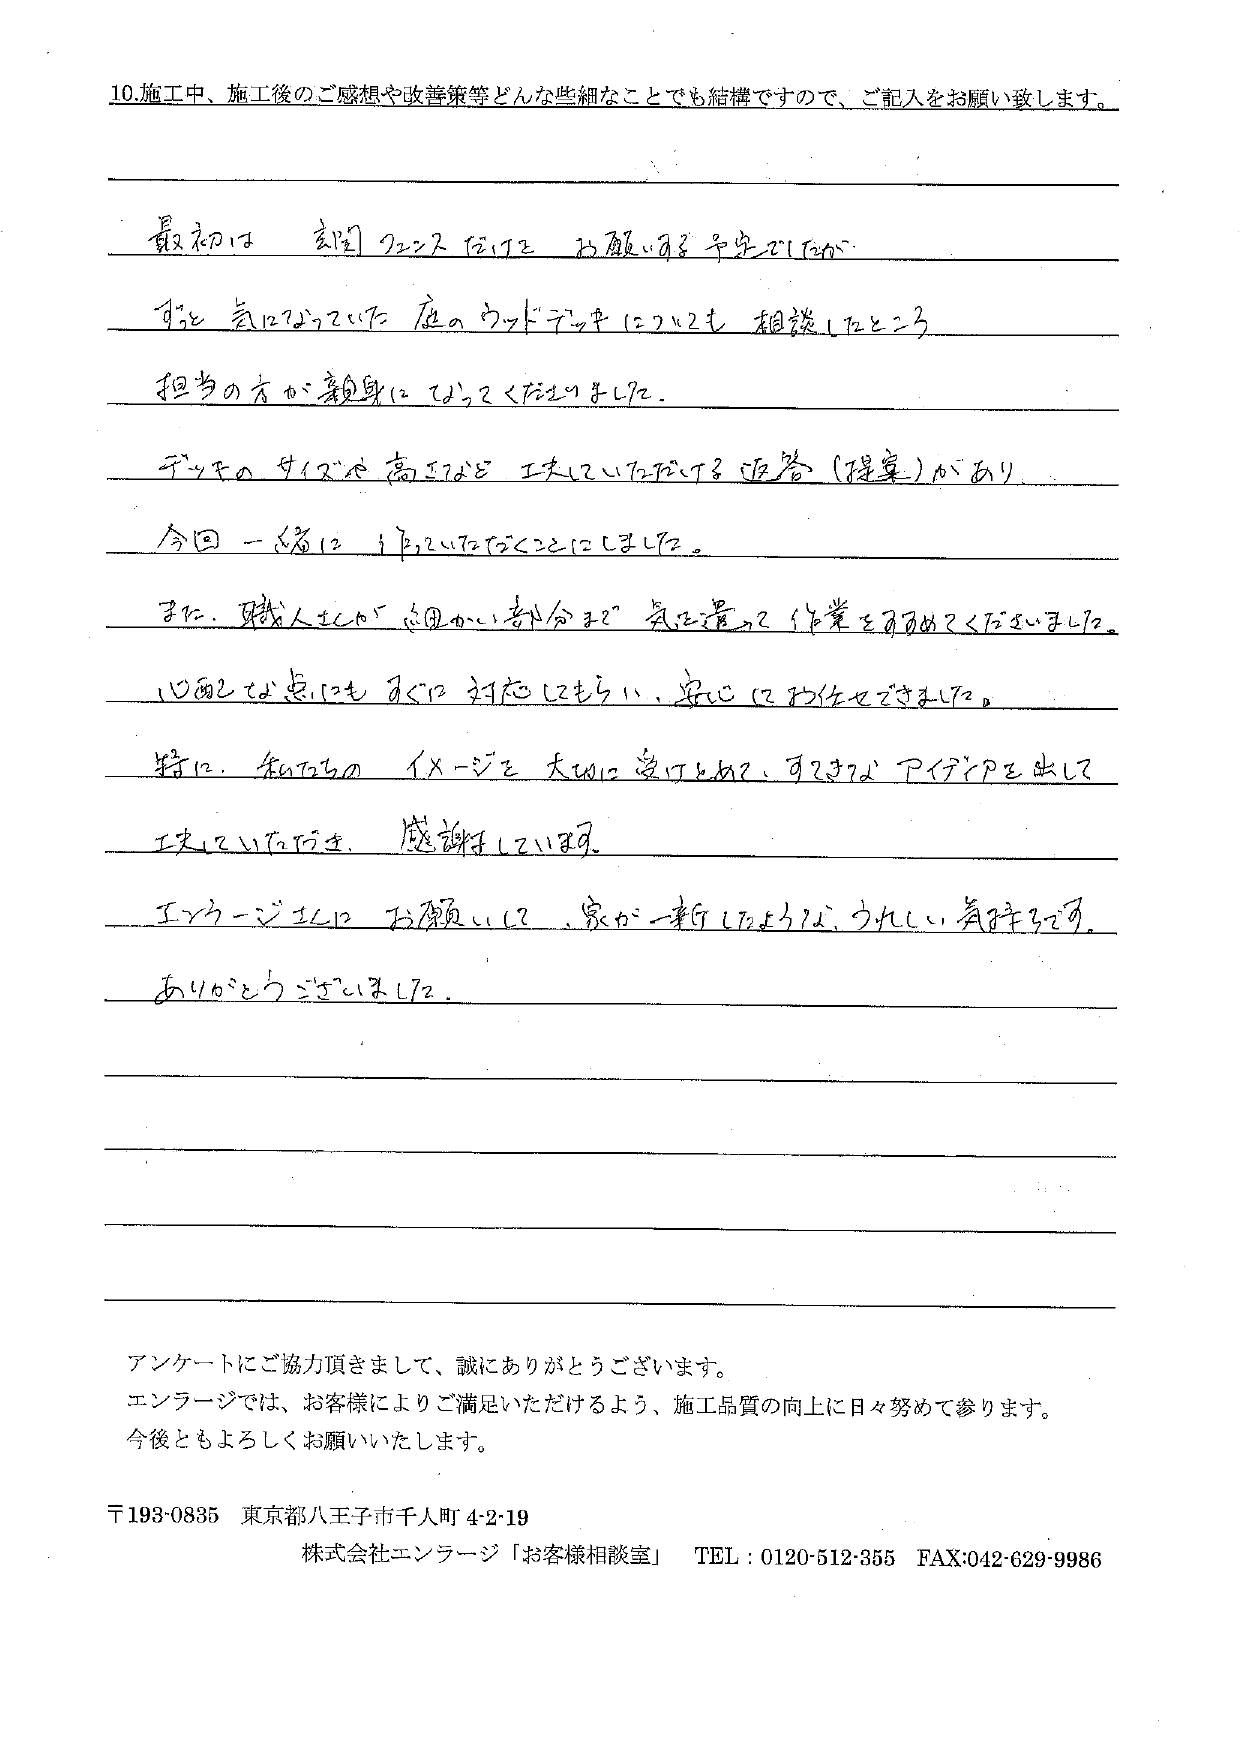 10.施工中、施工後のご感想や改善策等どんな些細なことでも結構ですので、ご記入をお願い致します。
最初は 玄関フェンスだけを お願いする予定でしたが
ずっと 気になっていた 庭のウッドデッキについても 相談したところ
担当の方が親身になってくださりました.
デッキの サイズや 高さなど 工夫していただける返答(提案)があり
今回 一緒に 作っていただくことにしました。
また、職人さんが 細かい部分まで 気を遣って 作業をすすめてくださいました。
心配な点にも すぐに 対応してもらい、安心してお任せできました。
特に、私たちの イメージを 大切に 受けとめて、すてきな アイディアを出して
工夫していただき、 感謝しています.
エンラージさんに お願いして、家が一新したような、うれしい気持ちです.
ありがとうございました.
アンケートにご協力頂きまして、誠にありがとうございます。
エンラージでは、お客様によりご満足いただけるよう、施工品質の向上に日々努めて参ります。
今後ともよろしくお願いいたします。
〒193-0835 東京都八王子市千人町 4-2-19
株式会社エンラージ「お客様相談室」 TEL：0120-512-355 FAX:042-629-9986